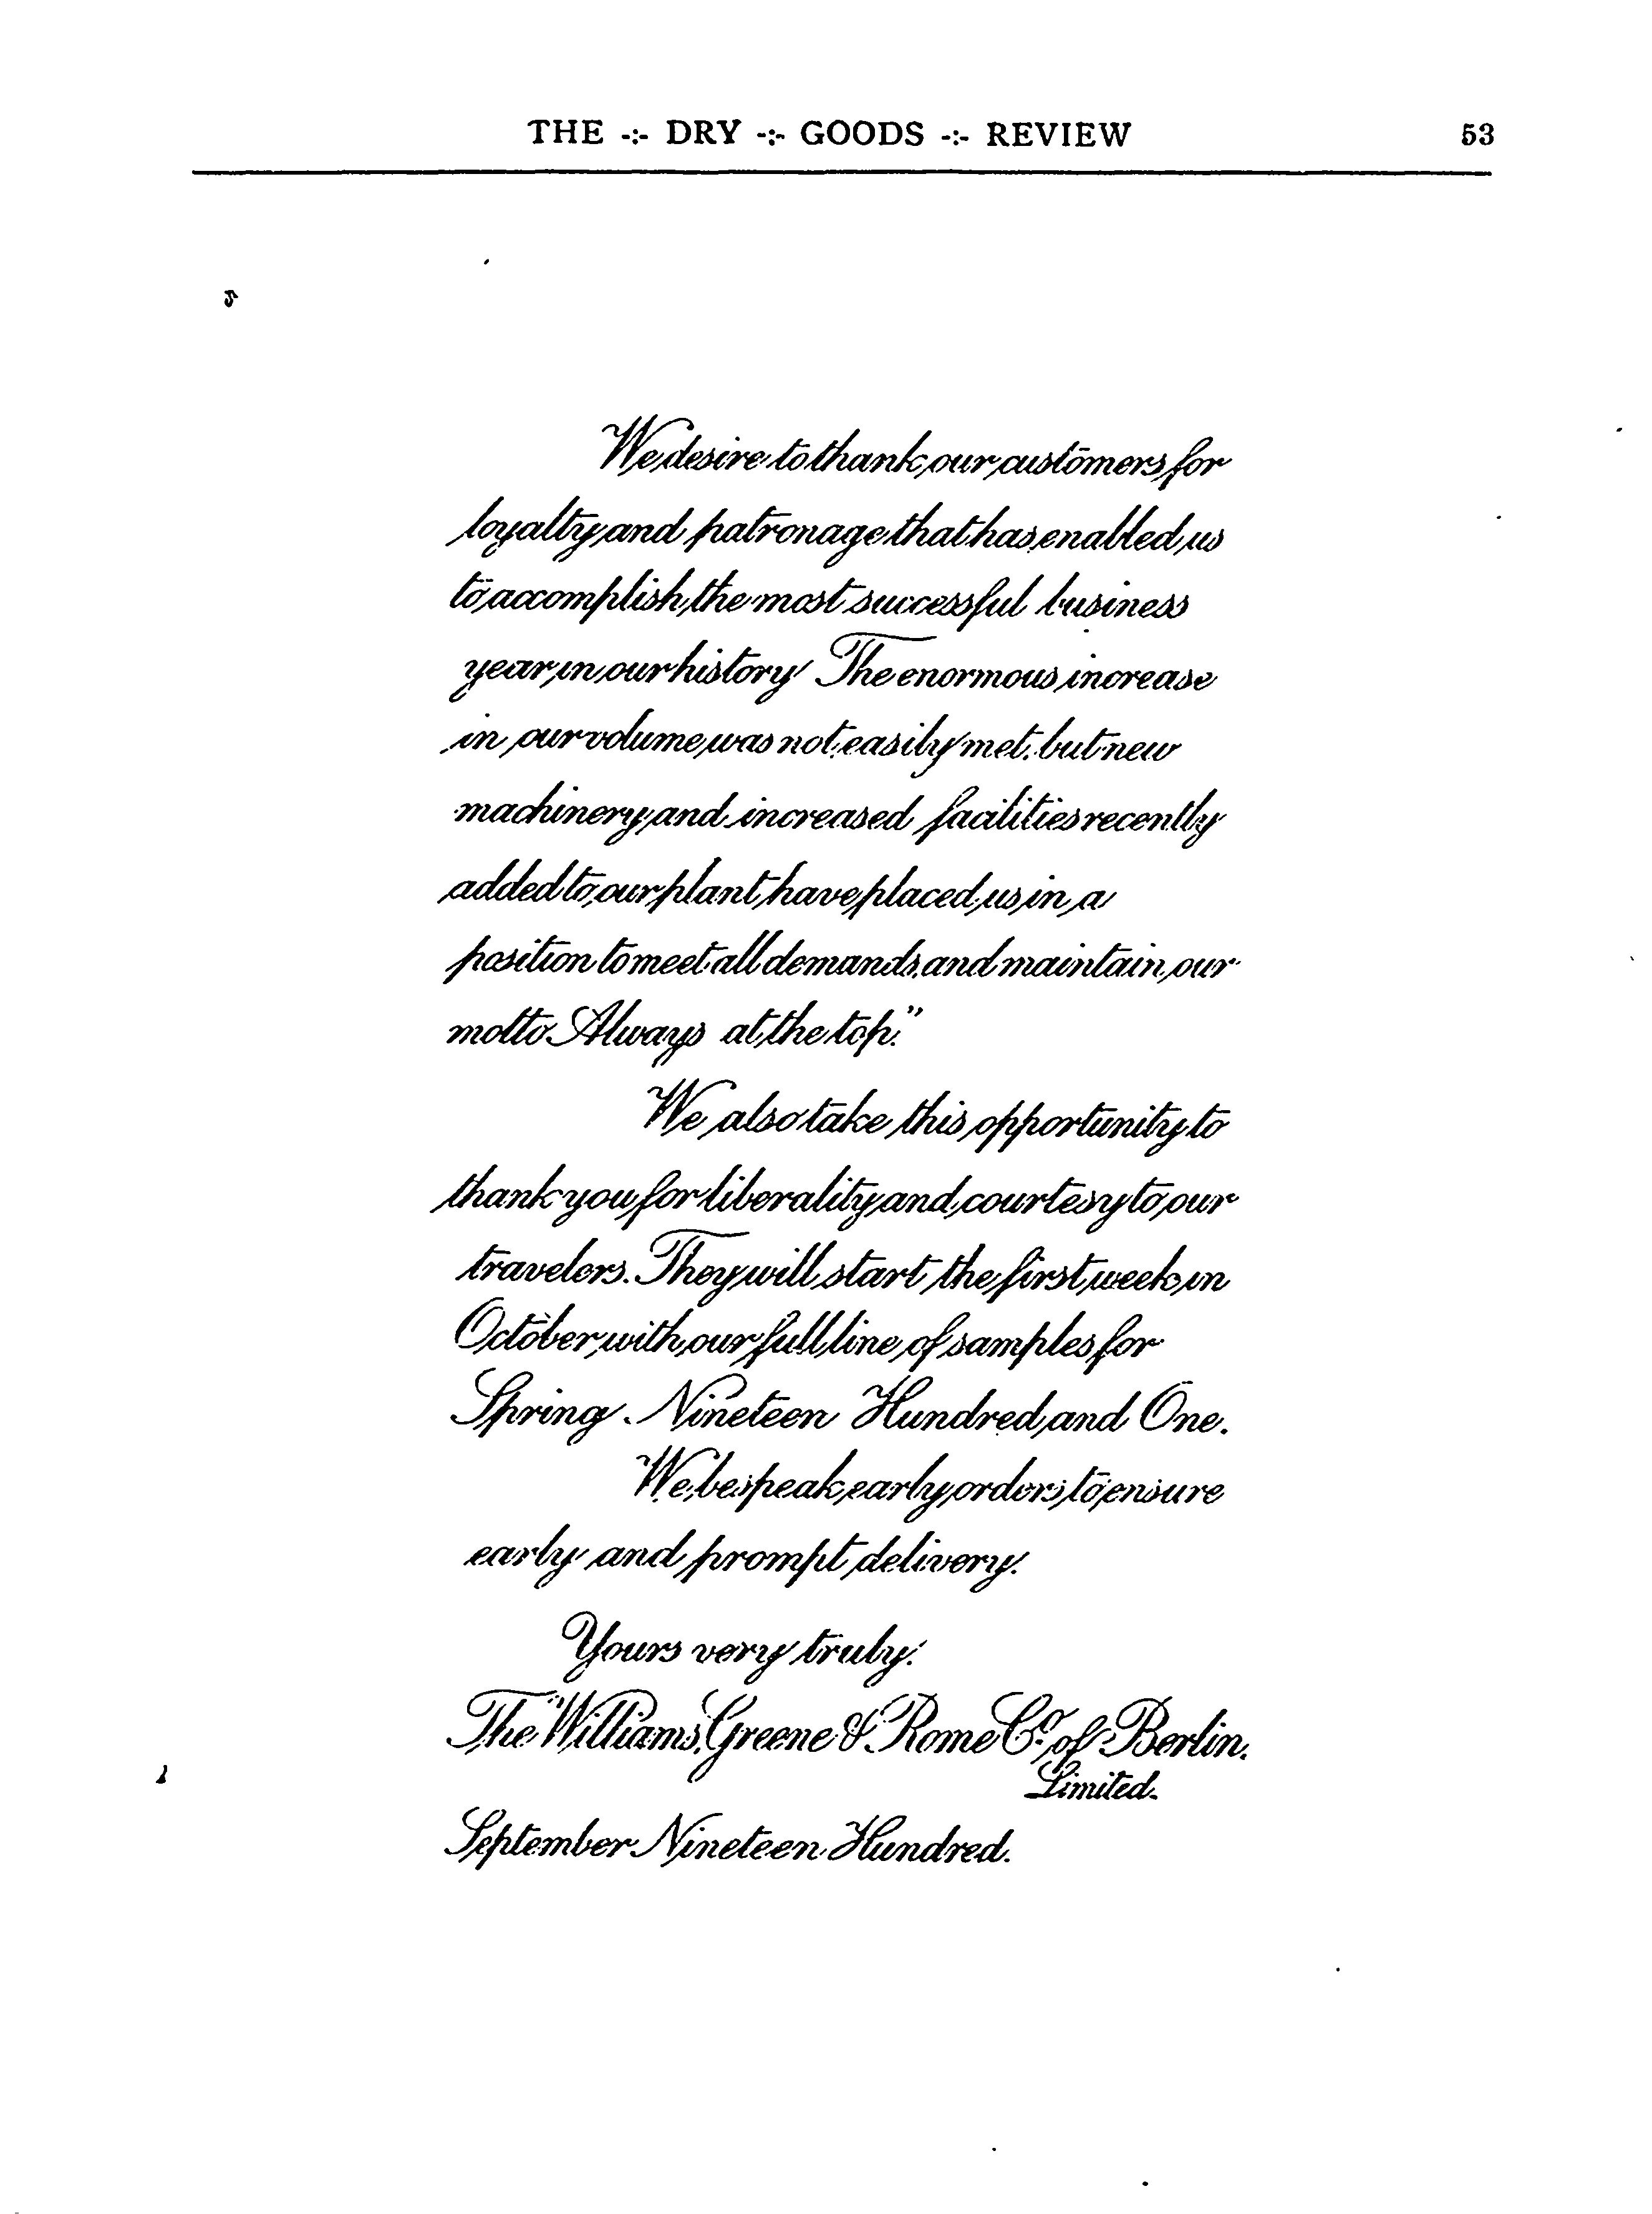 THE -:- DRY -:- GOODS -:- REVIEW 53
We desire to thank our customers for
loyalty and patronage that has enabled us
to accomplish the most successful business
year in our history The enormous increase
in our volume was not easily met. but new
machinery and increased facilities recently
added to our plant have placed us in a
position to meet all demands, and maintain our
motto Always at the top."
We also take this opportunity to
thank you for liberality and courtesy to our
travelers. They will start the first week in
October with our full line of samples for
Spring Nineteen Hundred and One.
We bespeak early orders to ensure
early and prompt delivery.
Yours very truly.
The Williams, Greene & Rome Co. of Berlin.
Limited.
September Nineteen Hundred.